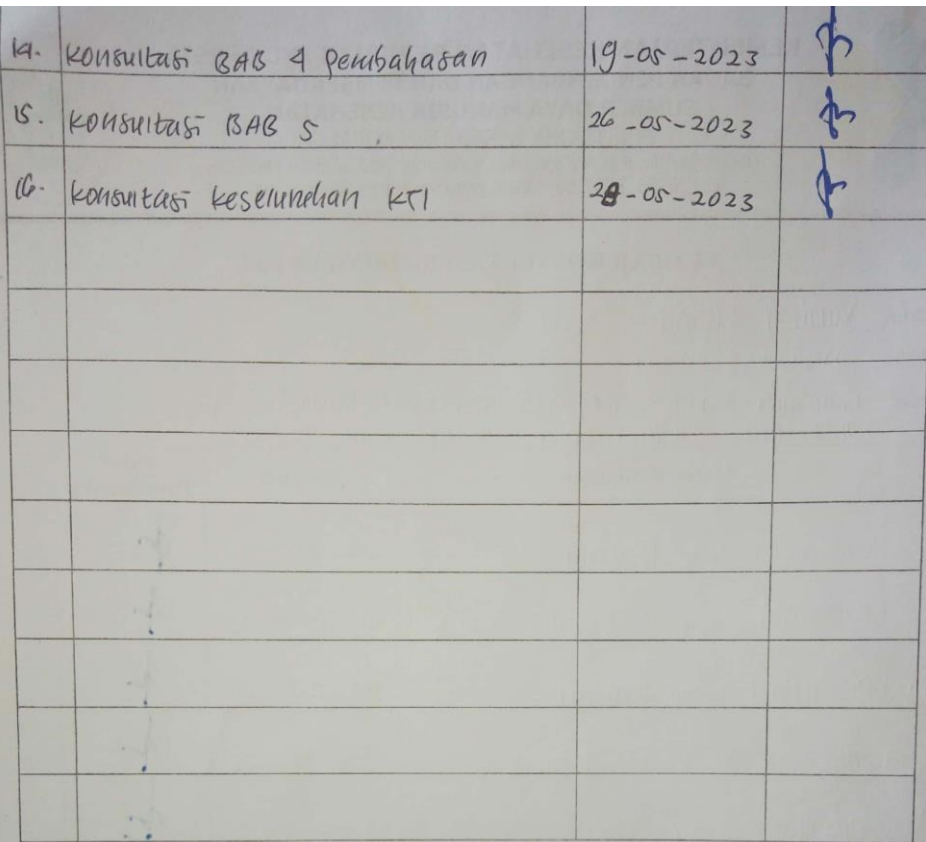 14. Konsultasi BAB 4 Pembahasan 19-05-2023
15. Konsultasi BAB 5 26-05-2023
16. Konsultasi Keselunehan KTI -05-2023